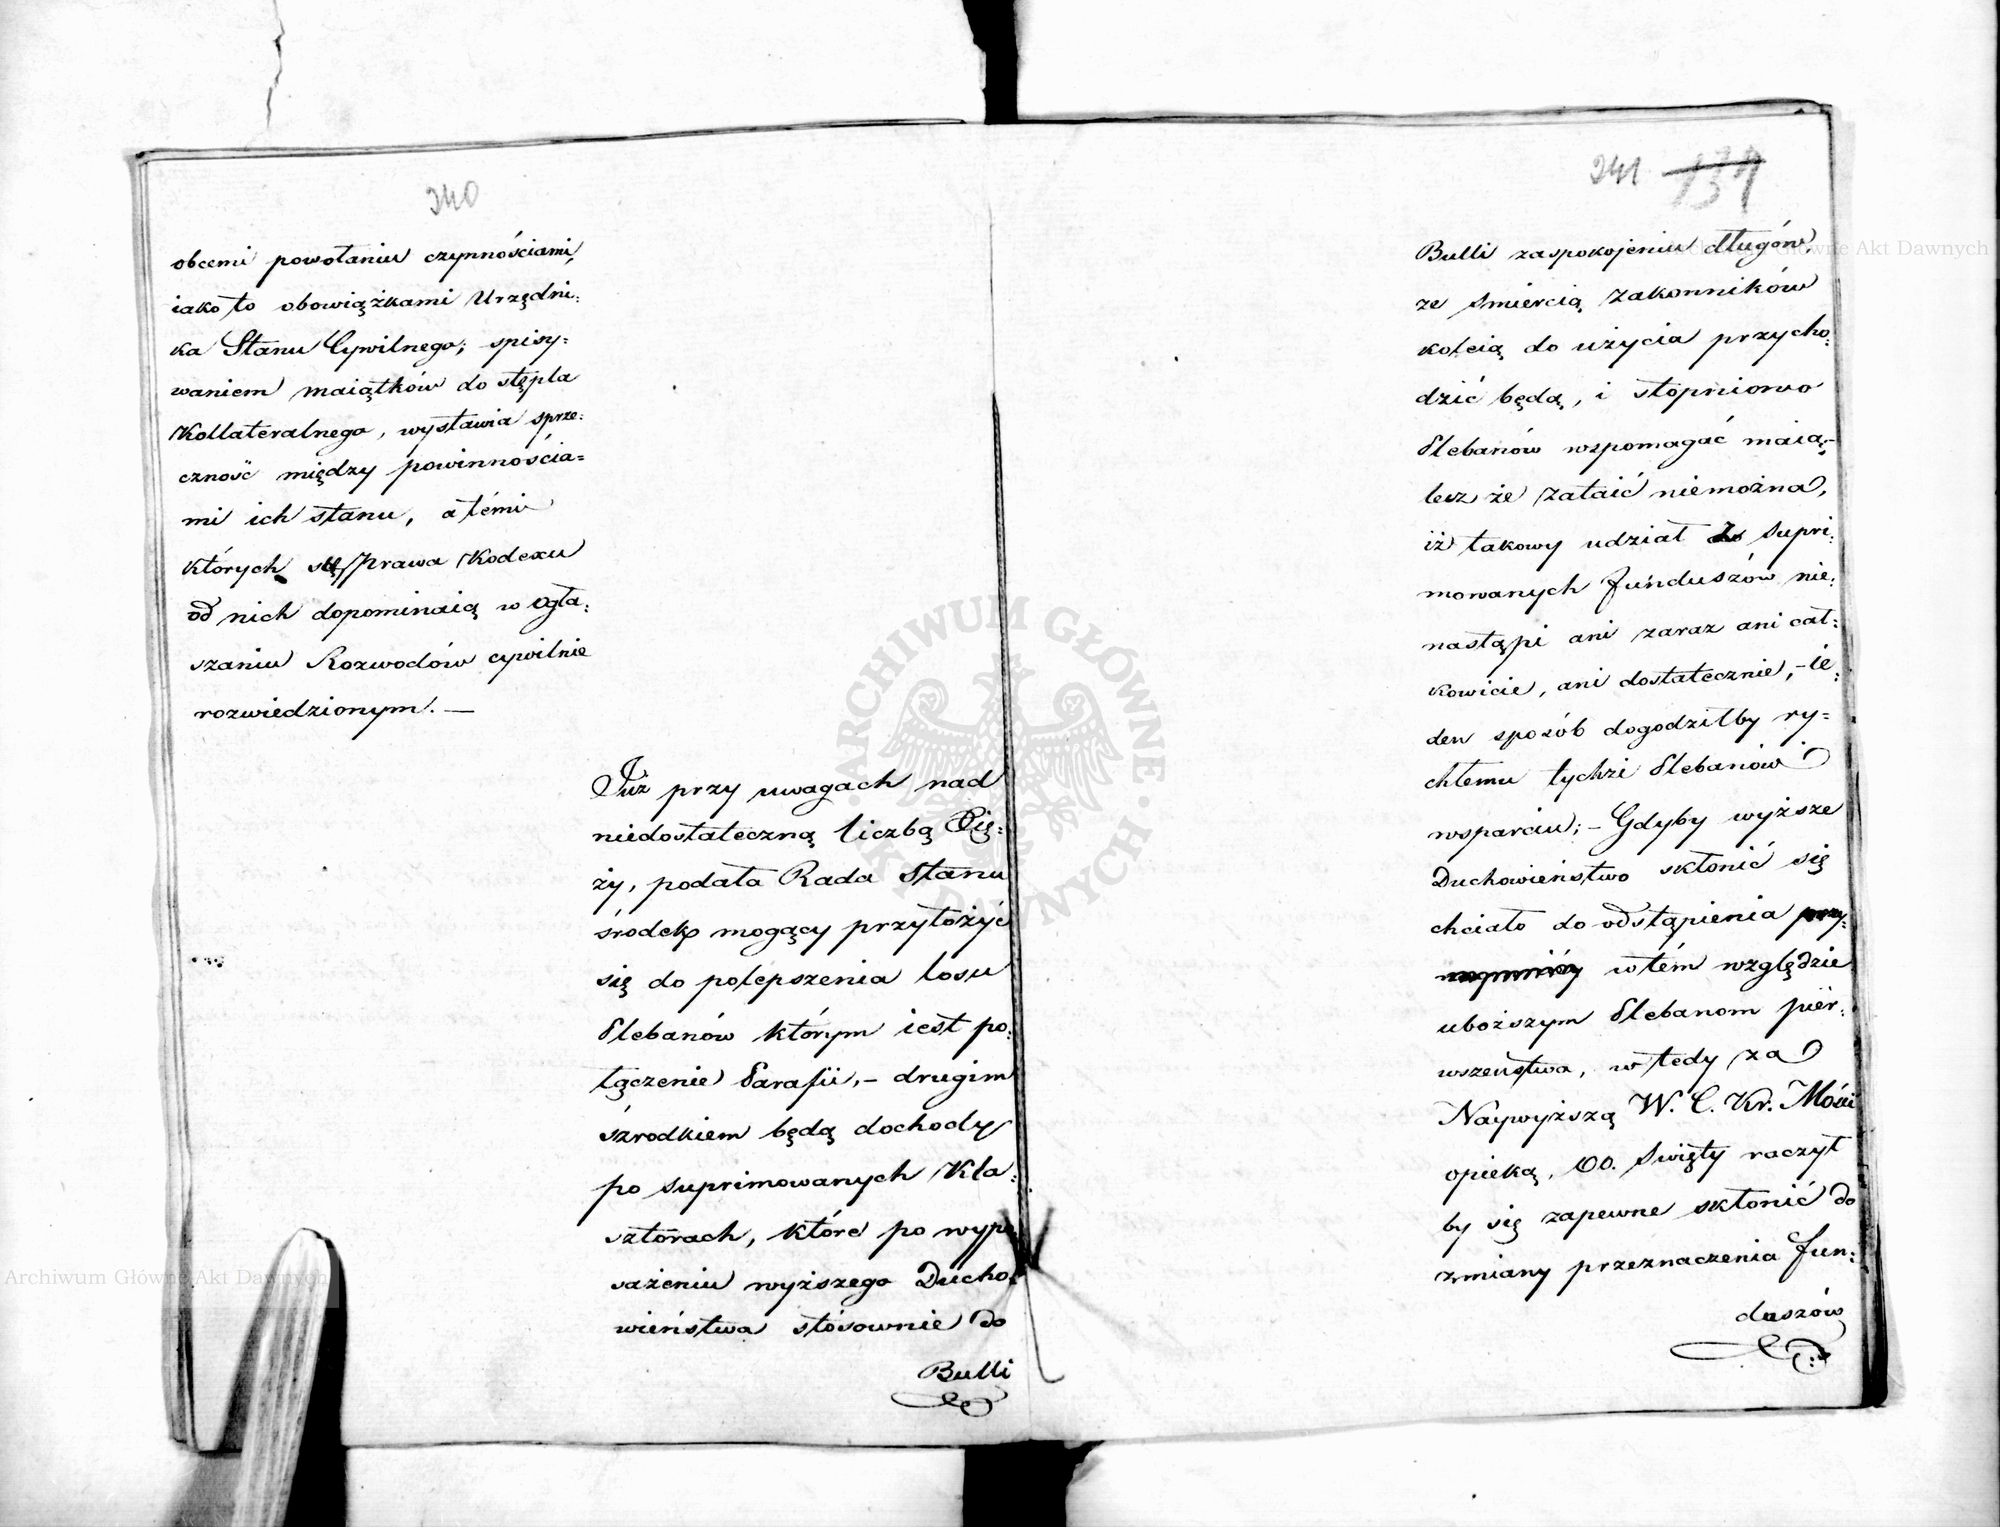 240
obcemi powołaniu czynnościami,
iako to obowiązkami Urzędni:
ka Stanu Cywilnego; spisy:
waniem maiątków do stępla
Kollateralnego, wystawia sprze:
czność między powinnościa=
mi ich stanu, a témi
których się Prawa Kodexu
od nich dopominaią w ogła:
szaniu Rozwodów cywilnie
rozwiedzionym. —
Już przy uwagach nad
niedostateczną liczbą Xię:
ży, podała Rada Stanu
środek mogący przyłożyć
się do polepszenia losu
Plebanów którym iest po:
łączenie Parafii, – drugim
śzrodkiem będą dochody
po suprimowanych Kla:
sztorach, które po wypo
sażeniu wyższego Ducho:
wieństwa stósownie do
Bulli
241 134
Bulli zaspokojeniu długów,
ze śmiercią zakonników
koleią do użycia przycho:
dzić będą, i stopniowo
Plebanów wspomagać maią,–
lecz że zataić niemożna,
iż takowy udział supri:
mowanych funduszów nie:
nastąpi ani zaraz ani cał:
kowicie, ani dostatecznie, – ie:
den sposób dogodziłby ry=
chłemu tychże Plebanów
wsparciu; – Gdyby wyższe
Duchowieństwo skłonić się
chciało do odstąpienia przy:
w tém względzie
uboższym Plebanom pier:
wszeństwa, w tedy za
Naywyższą W. C. Kr. Mości
opieką, OO. Święty raczył
by się zapewne skłonić do
zmiany przeznaczenia fun:
duszów
Archiwum Główne Akt Dawnych
Archiwum Główne Akt Dawnych
ARCHIWUM GŁÓWNE AKT DAWNYCH